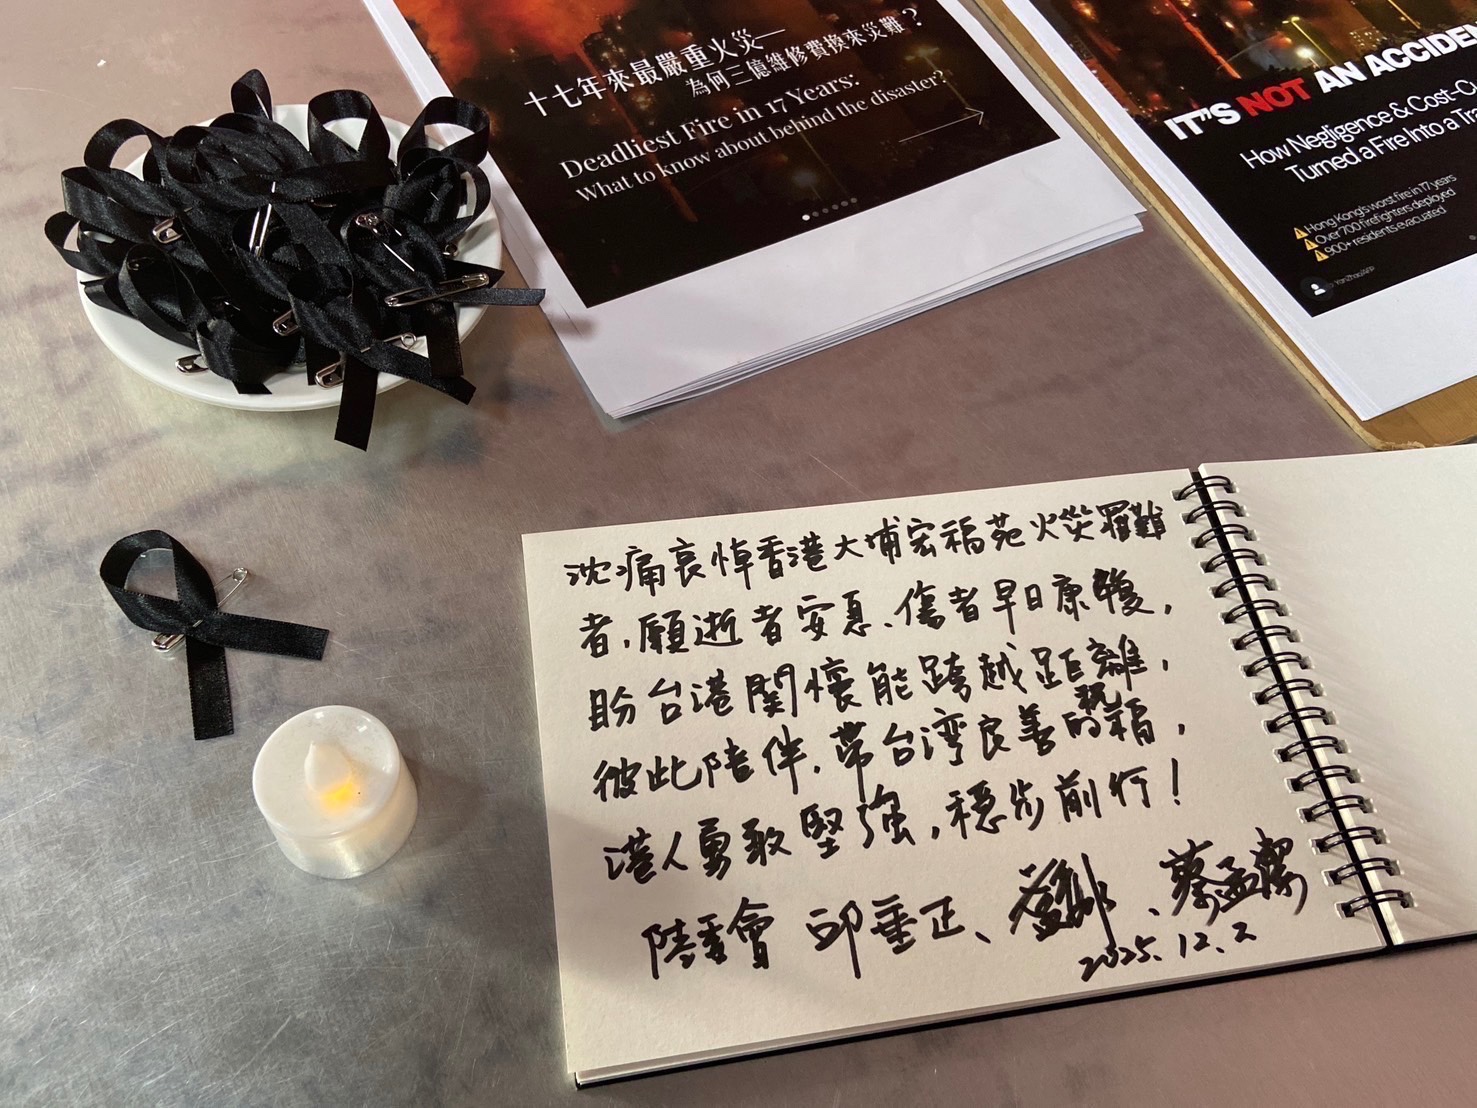 十七年來最嚴重火災—
為何三億維修費換來災難？
Deadliest Fire in 17 Years:
What to know about behind the disaster?
IT'S NOT AN ACCIDE
How Negligence & Cost-Cu
Turned a Fire Into a Tra
Hong Kong's worst fire in 17 years
Over 700 firefighters deployed
900+ residents evacuated
沈痛哀悼香港大埔宏福苑火災罹難
者，願逝者安息、傷者早日康復，
盼台港關懷能跨越距離，
彼此陪伴，帶台灣良善的祝福，
港人勇敢堅強，穩步前行！
陸委會 邱垂正、、蔡孟潔
2025.12.2